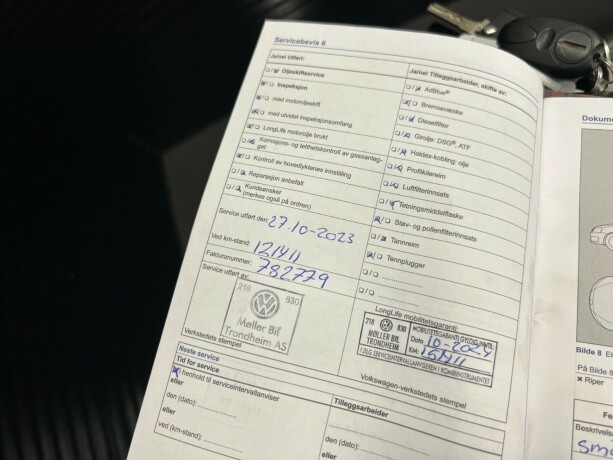 Servicebevis 6
Ja/nei Utført:
Oljeskiftservice
Inspeksjon
med motoroljeskift
med utvidet inspeksjonsomfang
LongLife motorolje brukt
Korrosjons- og tetthetskontroll av gassanleg-
get
Kontroll av hovedlyktenes innstilling
Reparasjon anbefalt
Kundeønsker
(merkes også på ordren)
Service utført den: 27.10-2023
Ved km-stand: 121411
Fakturanummer: 782779
Service utført av:
218 830
Møller Bil
Trondheim AS
Verkstedets stempel
Ja/nei Tilleggsarbeider, skifte av:
AdBlue®
Bremsevæske
Dieselfilter
Girolje: DSG®, ATF
Haldex-kobling: olje
Profilkilereim
Luftfilterinnsats
Tetningsmiddelflaske
Støv- og pollenfilterinnsats
Tannreim
Tennplugger
LongLife mobilitetsgaranti:
218 830
MØLLER BIL
TRONDHEIM
MOBILITETSGARANTI GYLDIG INNTIL
Dato 10-2024
KM:
Volkswagen-verkstedets stempel
Neste service
Tid for service
I henhold til serviceintervallanviser
eller
den (dato):
eller
ved (km-stand):
Tilleggsarbeider
den (dato):
eller
Dokume
Bilde 8
På Bilde 8
× Riper
Beskrivels